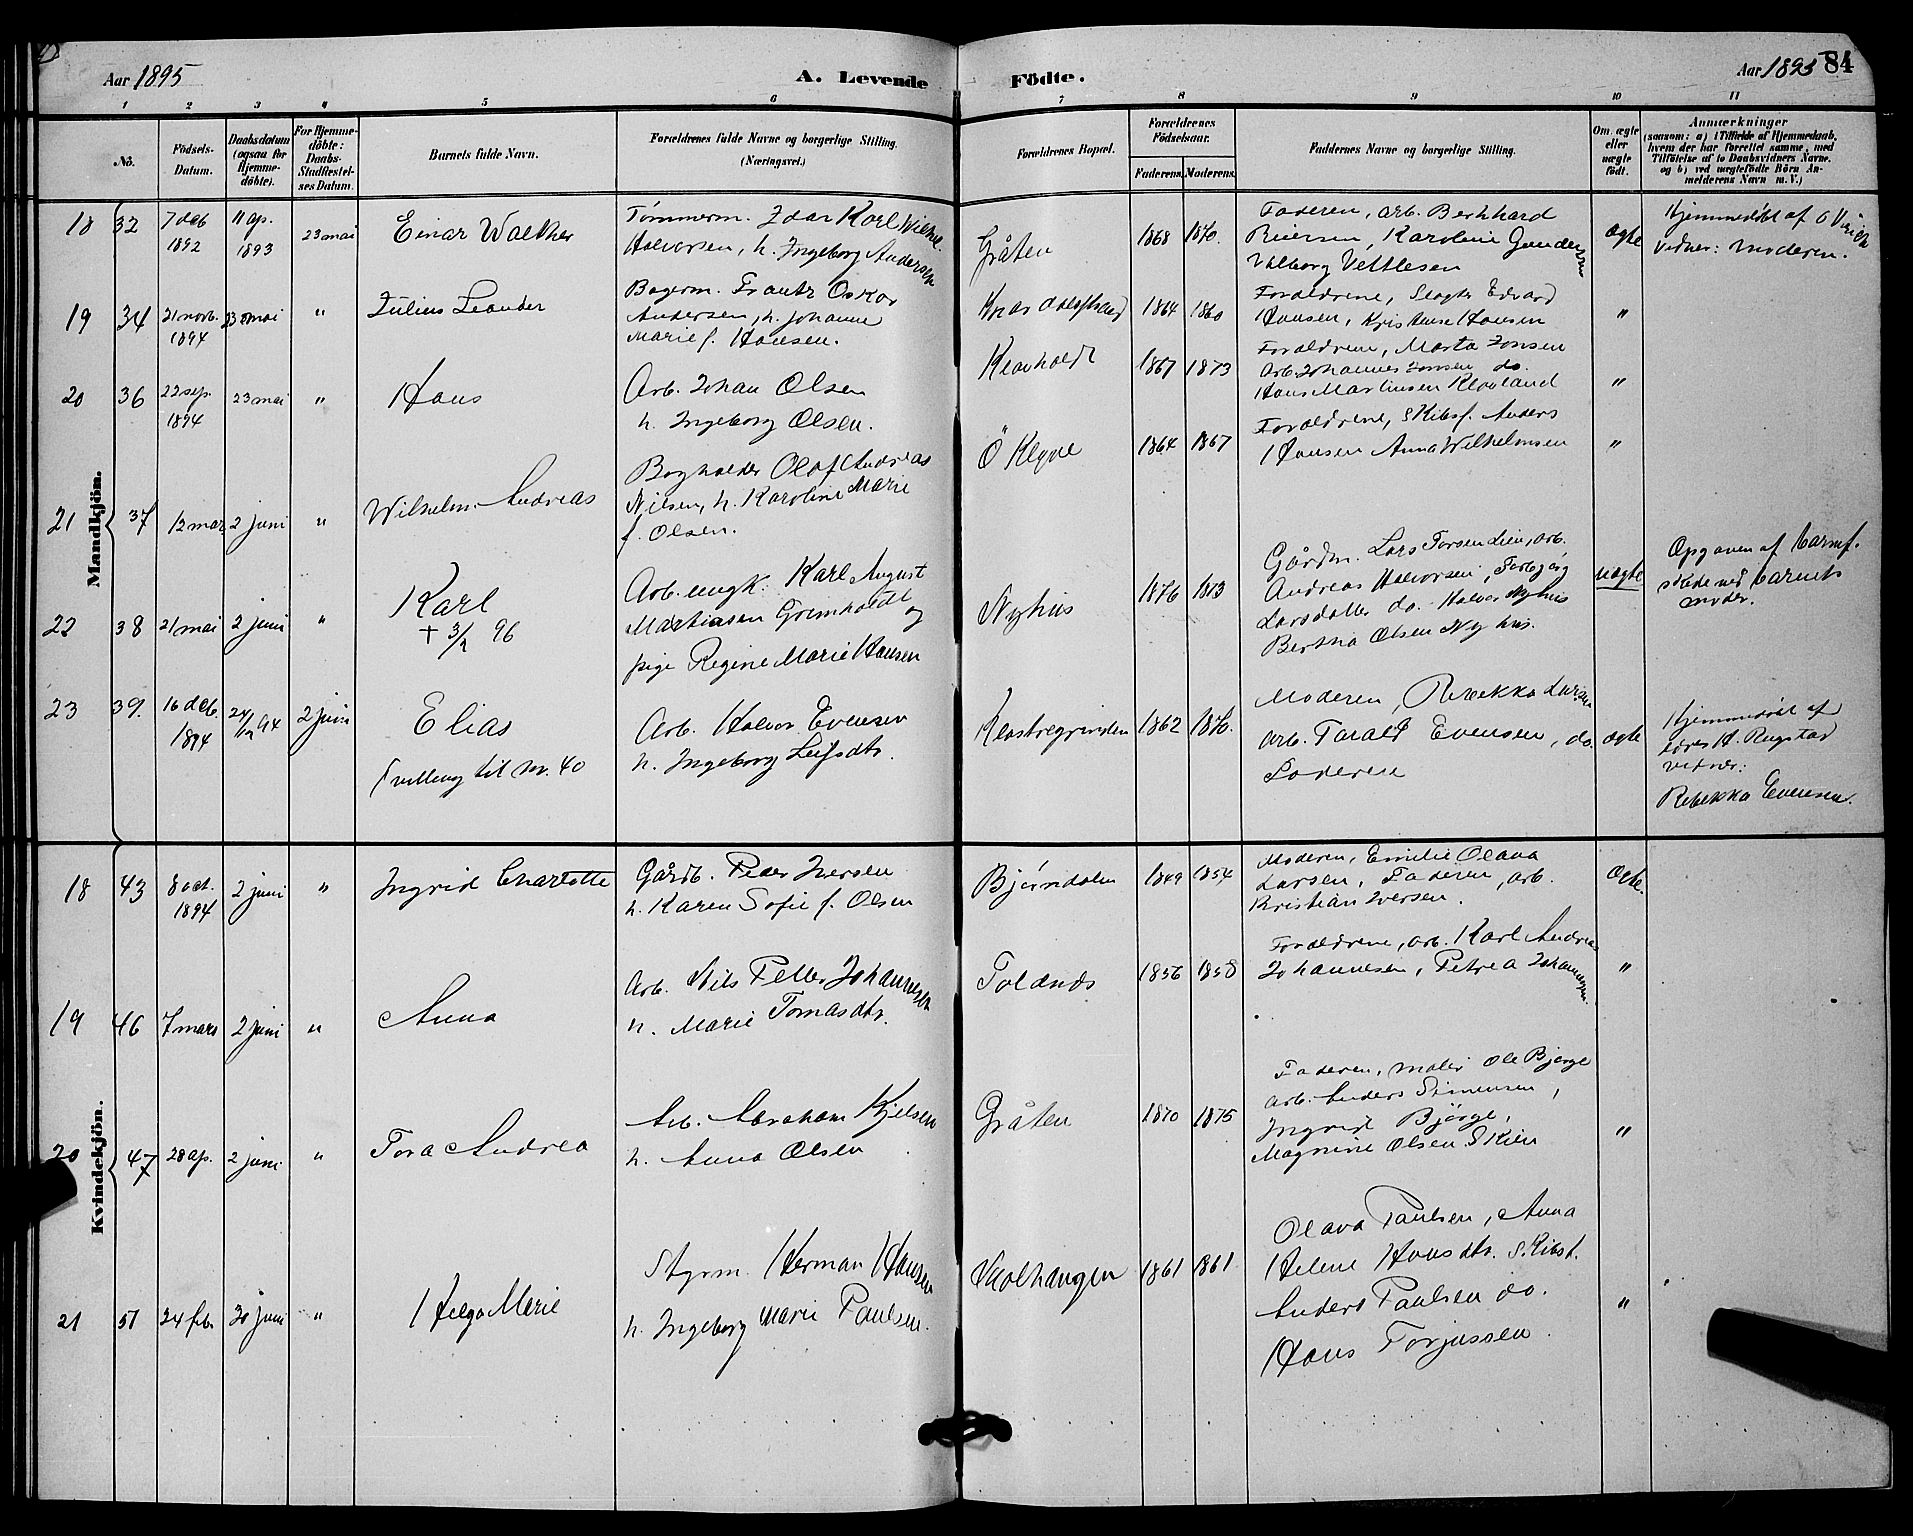 Aar 1895
A. Levende
Födte.
Aar 1895
84
1 2 3 4 5 6 7 8 9 10 11
No.
Födsels-Datum.
Daabsdatum (ogsaa for Hjemme-döbte).
For Hjemme-döbte: Daabs-Stadfæstel-ses Datum.
Barnets fulde Navn.
Forældrenes fulde Navne og borgerlige Stilling.
(Næringsvei.)
Forældrenes Bopæl.
Forældrenes Födselsaar.
Faderens. Moderens.
Faddernes Navne og borgerlige Stilling.
Om ægte eller uægte født.
Anmærkninger
(saasom: a) i Tilfælde af Hjemmedaab,
hvem der har forrettet samme, med
Tilföielse af to Daabsvidners Navne,
og b) ved uægtefödte Börn An-
melderens Navn m. V.)
Mandkjön.
18 32 7 deb 1892 11 ap. 1893 23 mai
Einar Walther
Tømmerm. Idar Karl Wilhel.
Halvorsen, h. Ingeborg Andersen
Gråten 1868 1870.
Faderen, arb. Bernhard
Reiersen, Karoline Gundersen
Valborg Vettlesen
ægte
Hjemmedøbt af
vidner: Moderen.
19 34 21 novb. 1894 23 mai "
Julius Leander
Bagerm. Frantz Oskar
Andersen, h. Johanne
Marie f. Hansen.
1864 1860
Forældrene, Slagter Edvard
Hansen, Kristense Hansen
"
20 36 22 sep. 1894 23 mai "
Hans
Arb. Johan Olsen
h. Ingeborg Olsen.
Klovholdt 1867 1873
Forældrene, Marta Jonsen
Arb. Johannes Jonsen do.
Hans Martinsen Klovland
"
21 37 12 mar 2 juni "
Wilhelm Andreas
Bogholder Olaf Andreas
Nilsen, h. Karoline Marie
f. Olsen.
Ö Kleve 1864 1867
Forældrene, Skibsf. Anders
Hansen Anna Wilhelmsen
"
22 38 21 mai 2 juni "
Karl
+ 3/2 96
Arb. ungk. Karl August
Mathiasen Grimholdt og
pige Regine Marie Hansen
Nyhus 1876 1873
Gårdm. Lars Torsen Lien, arb.
Andreas Halvorsen, Torbjørg
Larsdatter do. Halvor Nyhus
Bertha Olsen Nyhus.
uægte
Opgaven af barnef.
skede ved barnets
moder.
23 39. 16 deb. 1894 24/12 94 2 juni
Elias
Tvilling til nr. 40
Arb. Halvor Evensen
h. Ingeborg Leifsdtr.
Klostregrinden 1862 1870.
Moderen, Rebekka Larsen
Arb. Tarald Evensen, do.
Faderen
ægte
Hjemmedøbt af
H. Rugstad
vidner:
Rebekka Evensen.
Kvindekjön.
18 43 8 oct. 1894 2 juni "
Ingrid Charlotte
Gårdb. Peder Iversen
h. Karen Sofie f. Olsen
Bjørndalen 1849 1854
Moderen, Emilie Olava
Larsen, Faderen, arb.
Kristian Iversen.
Ægte.
19 46 7 mars 2 juni "
Anna
Arb. Nils Petter Johannesen
h. Marie Tomasdtr.
Tolands 1856 1858
Forældrene, arb. Karl Andreas
Johannesen, Petrea Johannesen.
"
20 47 28 ap. 2 juni "
Tora Andrea
Arb. Abraham Kjelsen
h. Anna Olsen
Gråten 1870 1875
Faderen, maler Ole Bjørge
arb. Anders Simensen,
Ingrid Bjørge,
Magnine Olsen Skien
"
21 51 24 feb. 20 juni "
Helga Marie
Styrm. Herman Hansen
h. Ingeborg Marie Paulsen.
1861 1861
Olava Paulsen, Anna
Helene Hansdtr. Skibst.
Anders Paulsen do.
Hans Torjussen.
"